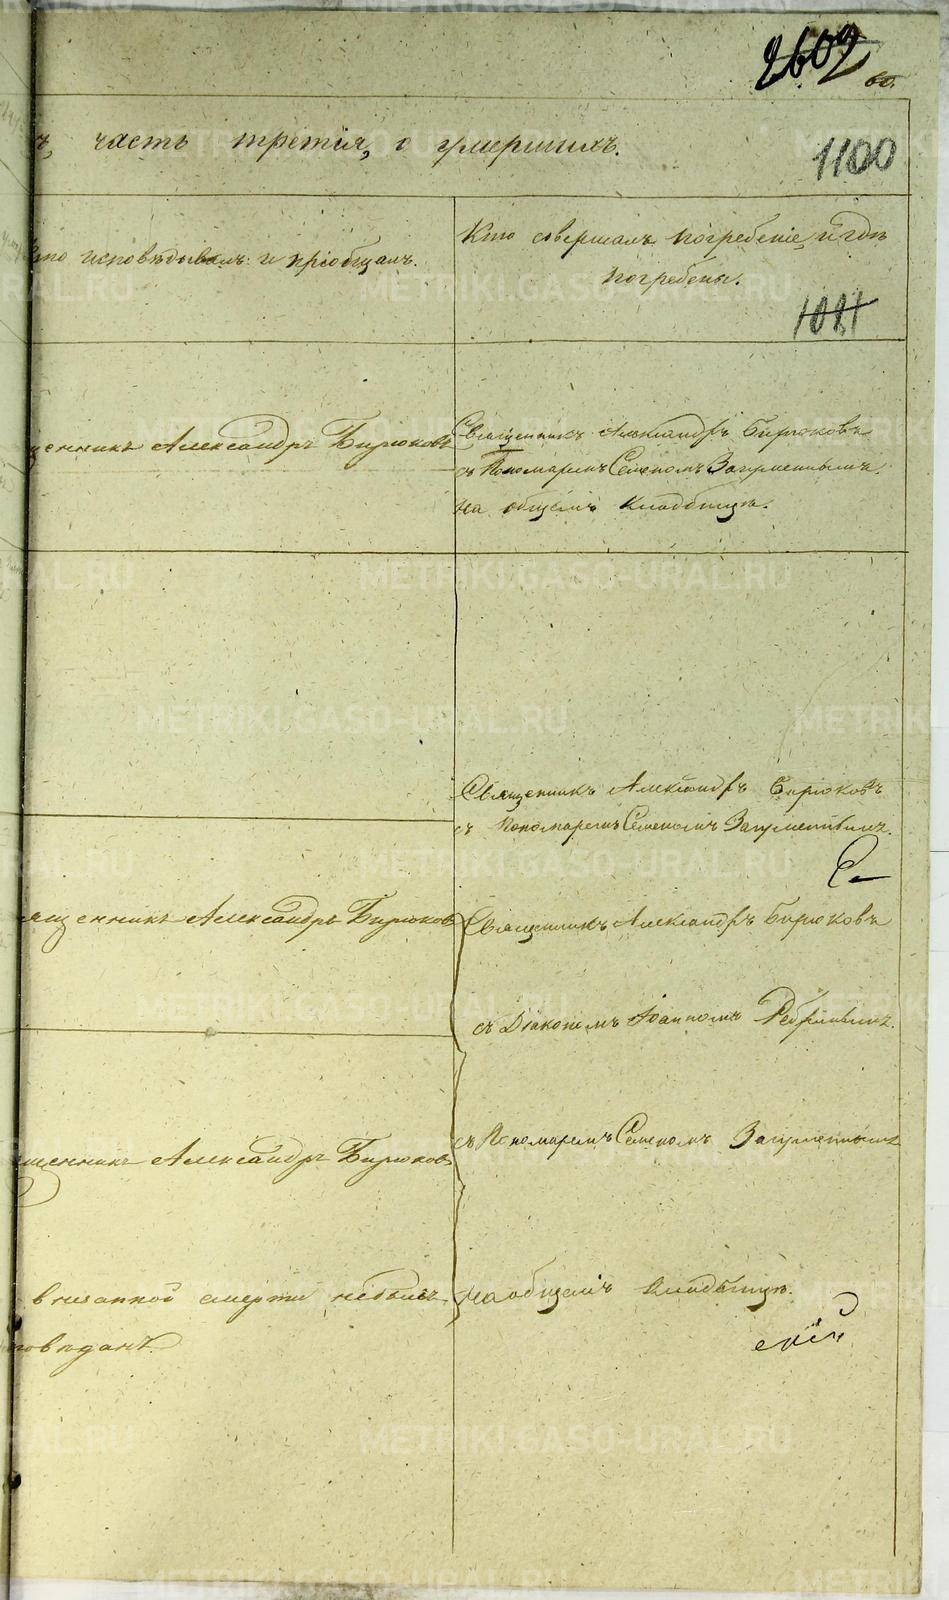 2602
60.
ъ, часть третія, о умершихъ.
1100
то исповѣдывалъ и пріобщалъ.
Кто совершалъ погребеніе, и гдѣ
погребены.
1081
щенникъ Александръ Бирюковъ
Священникъ Александръ Бирюковъ
съ Пономаремъ Семеномъ Загуменнымъ
на общемъ кладбищѣ.
Священникъ Александръ Бирюковъ
съ Пономаремъ Семеномъ Загуменнымъ.
ященникъ Александръ Бирюковъ
Священникъ Александръ Бирюковъ
съ Діакономъ Іоанномъ
съ Пономаремъ Семеномъ Загуменнымъ
щенникъ Александръ Бирюковъ
внезапной смерти небылъ
на общемъ кладбищѣ.
повѣданъ.
METRIKI.GASO-URAL.RU